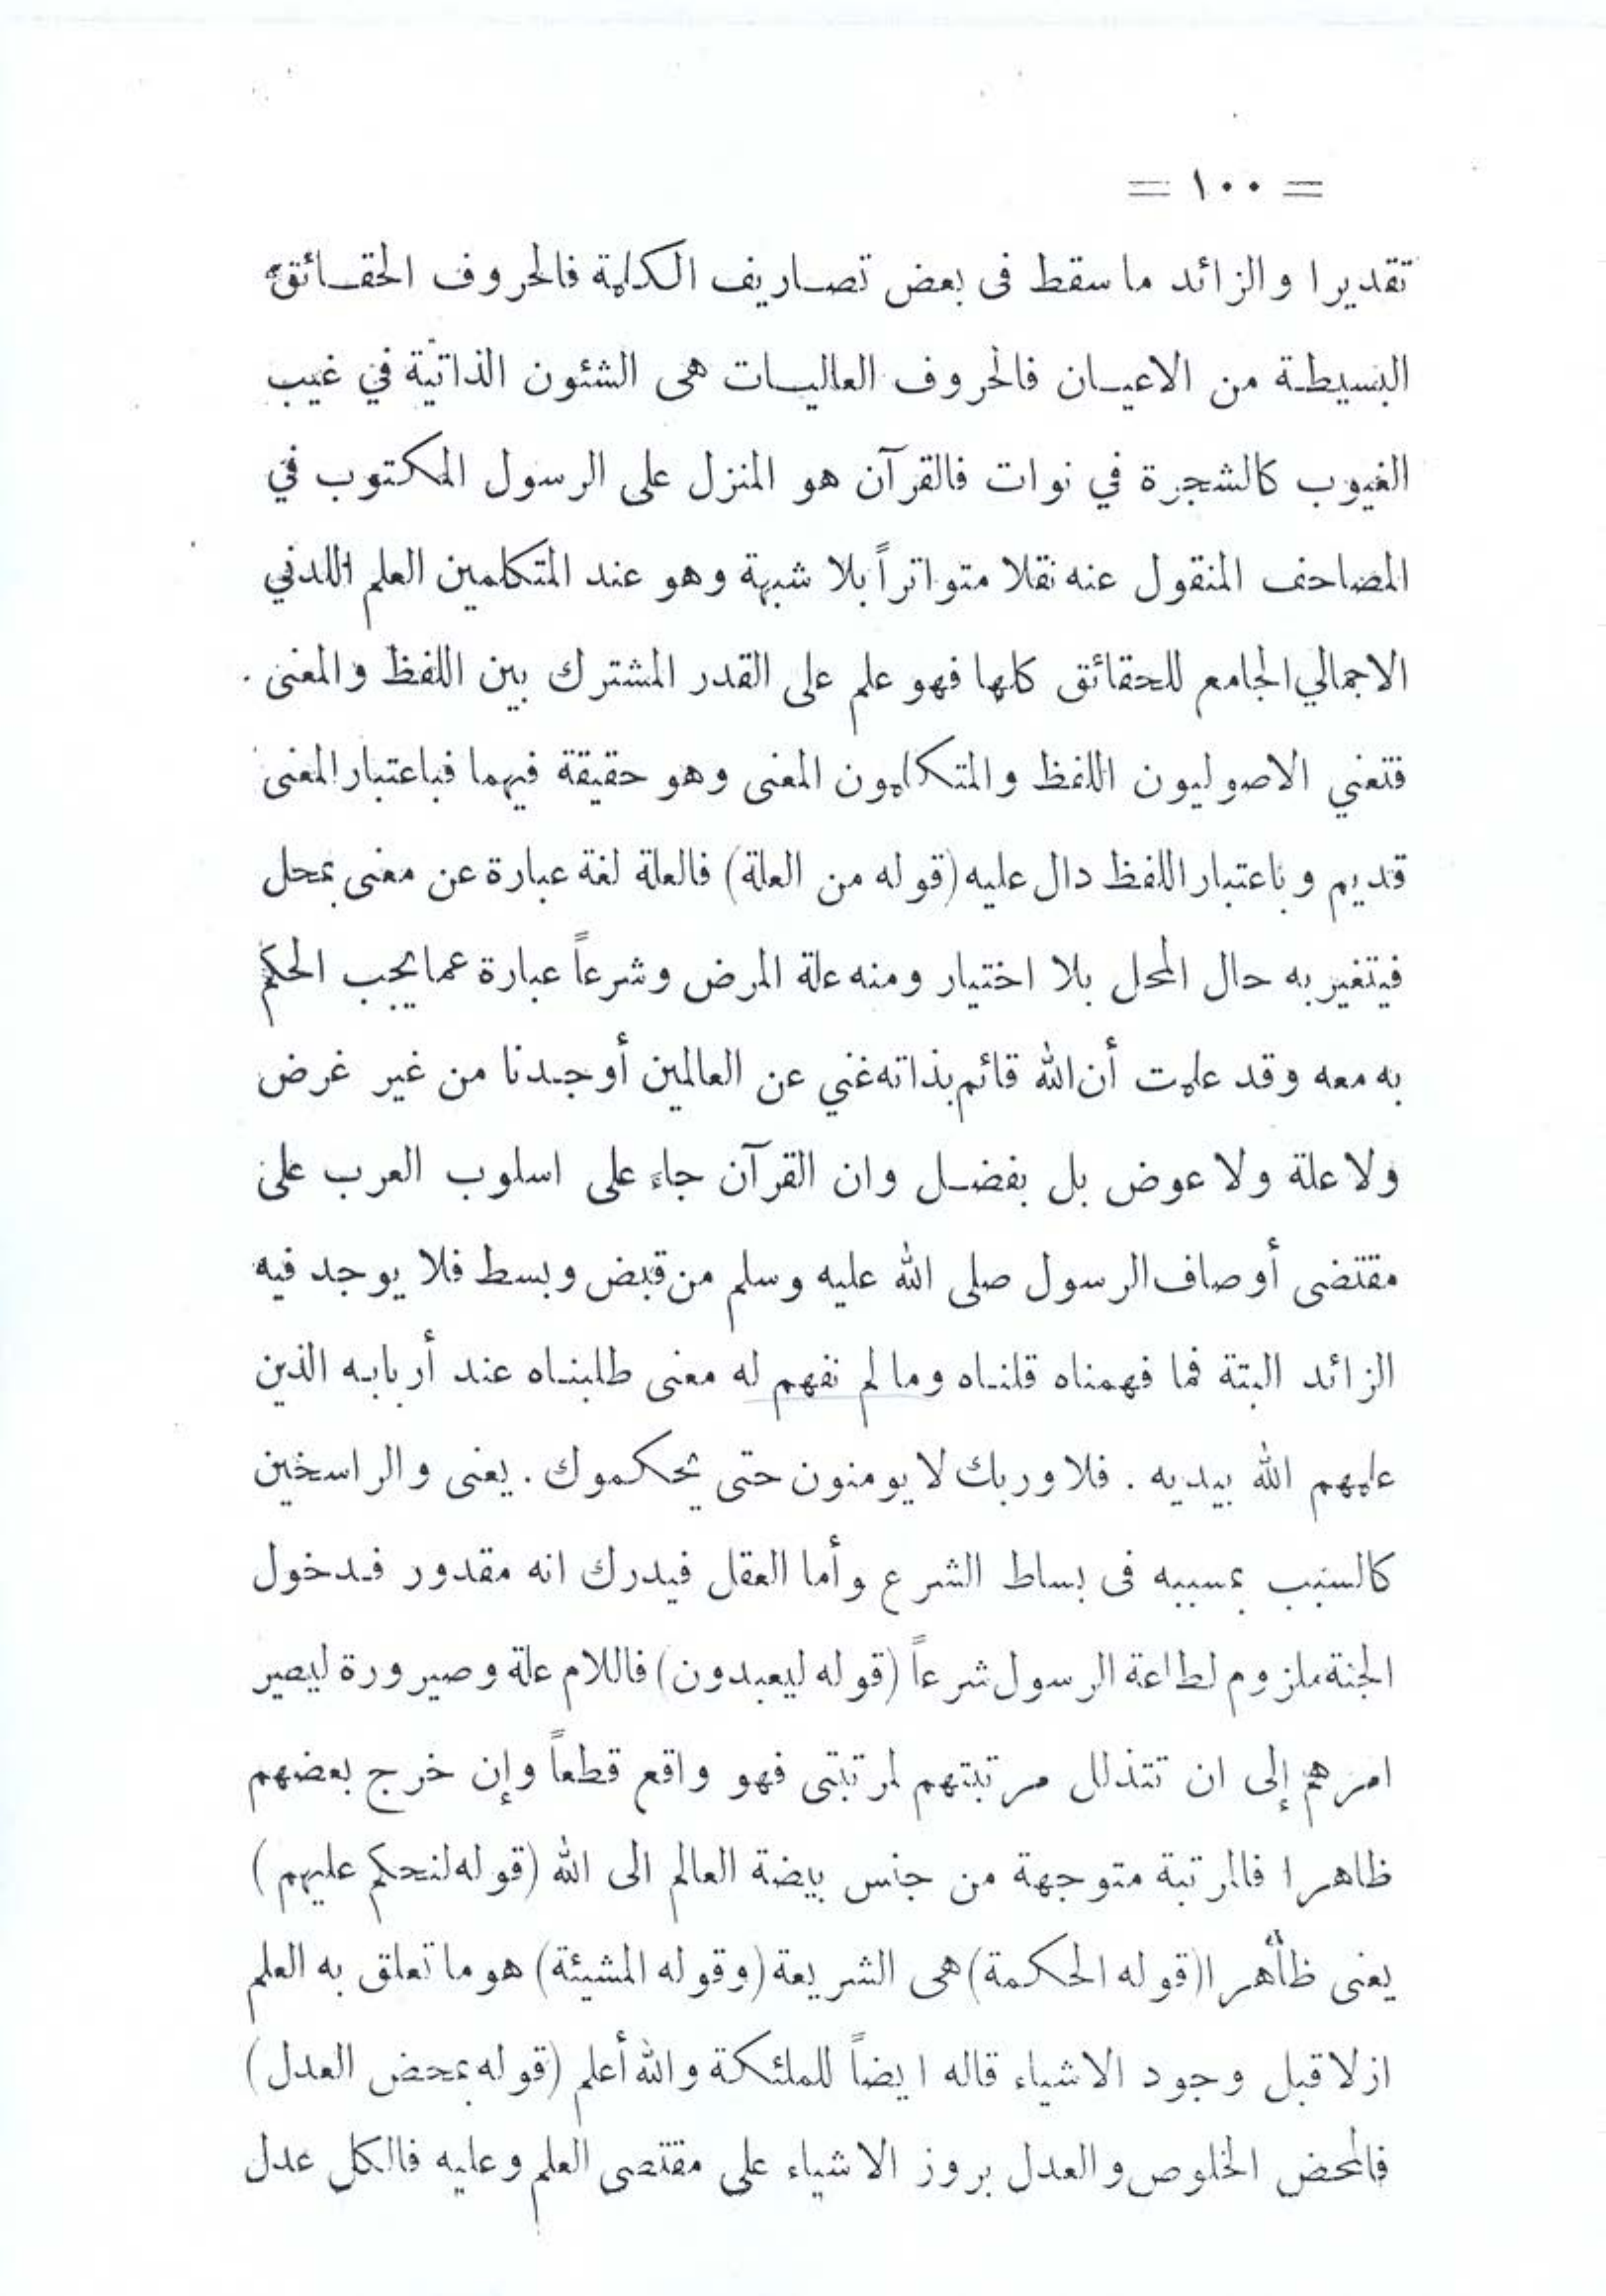 = ١٠٠ =
تقديرا والزائد ما سقط فى بعض تصاريف الكلمة فالحروف الحقائق
البسيطة من الاعيان فالحروف العاليات هى الشئون الذاتية في غيب
الغيوب كالشجرة في نوات فالقرآن هو المنزل على الرسول المكتوب في
المصاحف المنقول عنه نقلا متواتراً بلا شبهة وهو عند المتكلمين العلم اللدني
الاجمالي الجامع للحقائق كلها فهو علم على القدر المشترك بين اللفظ والمعنى .
فتعني الاصوليون اللفظ والمتكلمون المعنى وهو حقيقة فيهما فباعتبار المعنى
قديم وباعتبار اللفظ دال عليه (قوله من العلة) فالعلة لغة عبارة عن معنى بمحل
فيتغير به حال المحل بلا اختيار ومنه علة المرض وشرعاً عبارة عما يجب الحكم
به معه وقد علمت أن الله قائم بذاته غني عن العالمين أوجدنا من غير غرض
ولا علة ولا عوض بل بفضل وان القرآن جاء على اسلوب العرب على
مقتضى أوصاف الرسول صلى الله عليه وسلم من قبض وبسط فلا يوجد فيه
الزائد البتة فما فهمناه قلناه وما لم نفهم له معنى طلبناه عند أربابه الذين
علمهم الله بيديه . فلا وربك لا يومنون حتى يحكموك . يعنى والراسخين
كالسبب بمسببه فى بساط الشرع وأما العقل فيدرك انه مقدور فدخول
الجنة ملزوم لطاعة الرسول شرعاً (قوله ليعبدون) فاللام علة وصيرورة ليصير
امرهم إلى ان تتذلل مرتبتهم لمرتبتى فهو واقع قطعاً وإن خرج بعضهم
ظاهرا فالمرتبة متوجهة من جنس بيضة العالم الى الله (قوله لنحكم عليهم)
يعنى ظاهرا (قوله الحكمة) هى الشريعة (وقوله المشيئة) هو ما تعلق به العلم
ازلا قبل وجود الاشياء قاله ايضاً للملئكة والله أعلم (قوله بمحض العدل)
فالمحض الخلوص والعدل بروز الاشياء على مقتضى العلم وعليه فالكل عدل